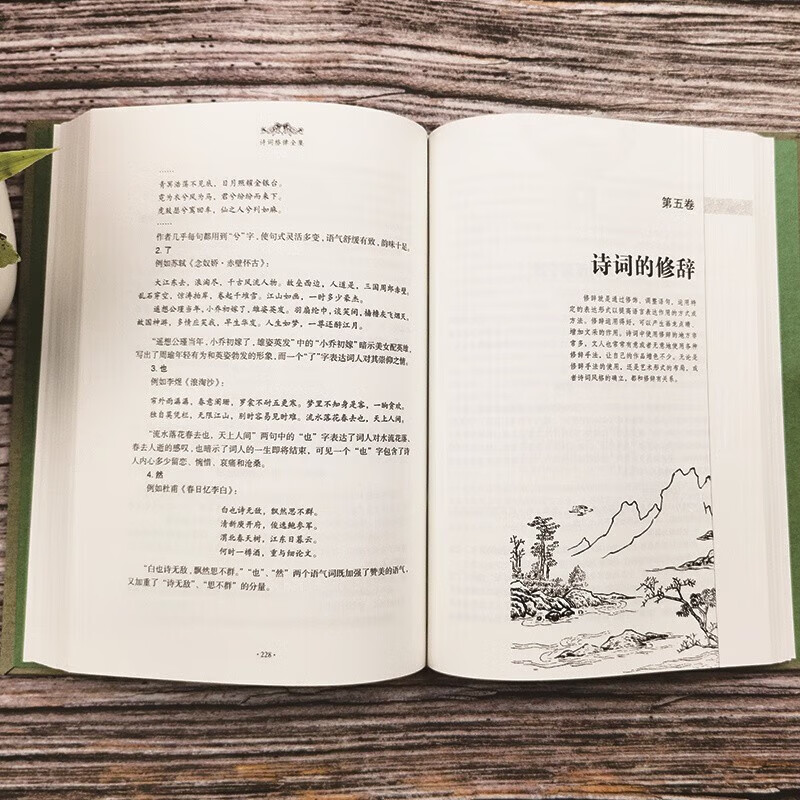 诗词格律全集
……
青冥浩荡不见底，日月照耀金银台。
霓为衣兮风为马，云之君兮纷纷而来下。
虎鼓瑟兮鸾回车，仙之人兮列如麻。
……
作者几乎每句都用到“兮”字，使句式灵活多变，语气舒缓有致，韵味十足。
2. 了
例如苏轼《念奴娇·赤壁怀古》：
大江东去，浪淘尽、千古风流人物。故垒西边，人道是，三国周郎赤壁。
乱石穿空，惊涛拍岸，卷起千堆雪。江山如画，一时多少豪杰。
遥想公瑾当年，小乔初嫁了，雄姿英发。羽扇纶巾，谈笑间，樯橹灰飞烟灭。
故国神游，多情应笑我，早生华发。人生如梦，一尊还酹江月。
“遥想公瑾当年，小乔初嫁了，雄姿英发”中的“小乔初嫁”暗示美女配英雄，
写出了周瑜年轻有为和英姿勃发的形象，而一个“了”字表达词人对其崇仰之情。
3. 也
例如李煜《浪淘沙》：
帘外雨潺潺，春意阑珊，罗衾不耐五更寒。梦里不知身是客，一晌贪欢。
独自莫凭栏，无限江山，别时容易见时难。流水落花春去也，天上人间。
“流水落花春去也，天上人间”两句中的“也”字表达了词人对水流花落、
春去人逝的感叹，也暗示了词人的一生即将结束，可见一个“也”字包含了诗
人内心多少留恋、惋惜、哀痛和沧桑。
4. 然
例如杜甫《春日忆李白》：
白也诗无敌，飘然思不群。
清新庾开府，俊逸鲍参军。
渭北春天树，江东日暮云。
何时一樽酒，重与细论文。
“白也诗无敌，飘然思不群。”“也”、“然”两个语气词既加强了赞美的语气，
又加重了“诗无敌”、“思不群”的分量。
·228·
第五卷
诗词的修辞
修辞就是通过修饰、调整语句，运用特
定的表达形式以提高语言表达作用的方式或
方法。修辞运用得好，可以产生画龙点睛，
增加文采的作用。诗词中使用修辞的地方非
常多，文人也常常有意或者无意地使用各种
修辞手法，让自己的作品增色不少。无论是
修辞手法的使用，还是艺术形式的布局，或
者诗词风格的确立，都和修辞有关系。